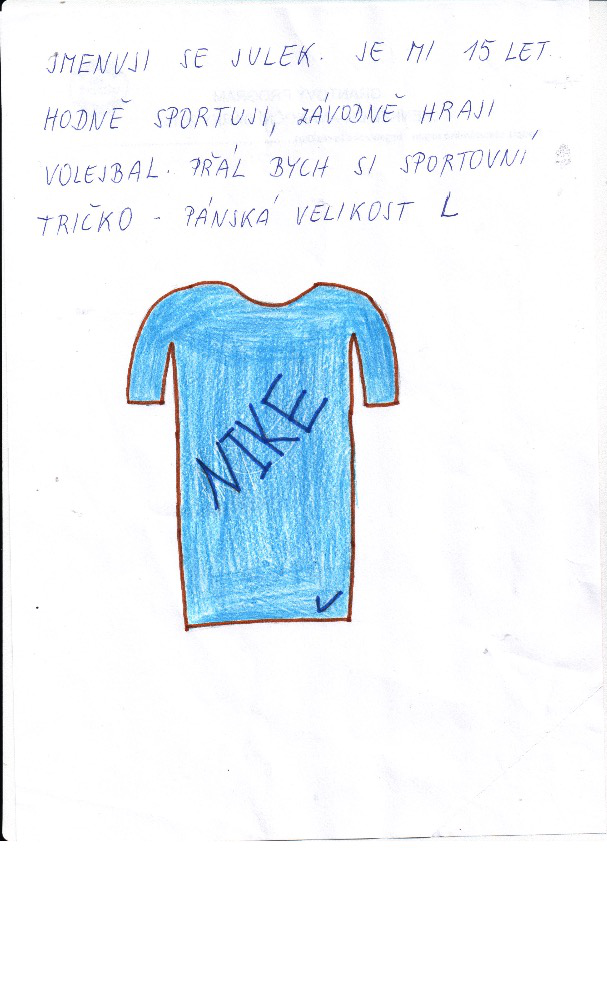 JMENUJI SE JULEK. JE MI 15 LET.
HODNĚ SPORTUJI, ZÁVODNĚ HRAJI
VOLEJBAL. PŘÁL BYCH SI SPORTOVNÍ
TRIČKO - PÁNSKÁ VELIKOST L
NIKE